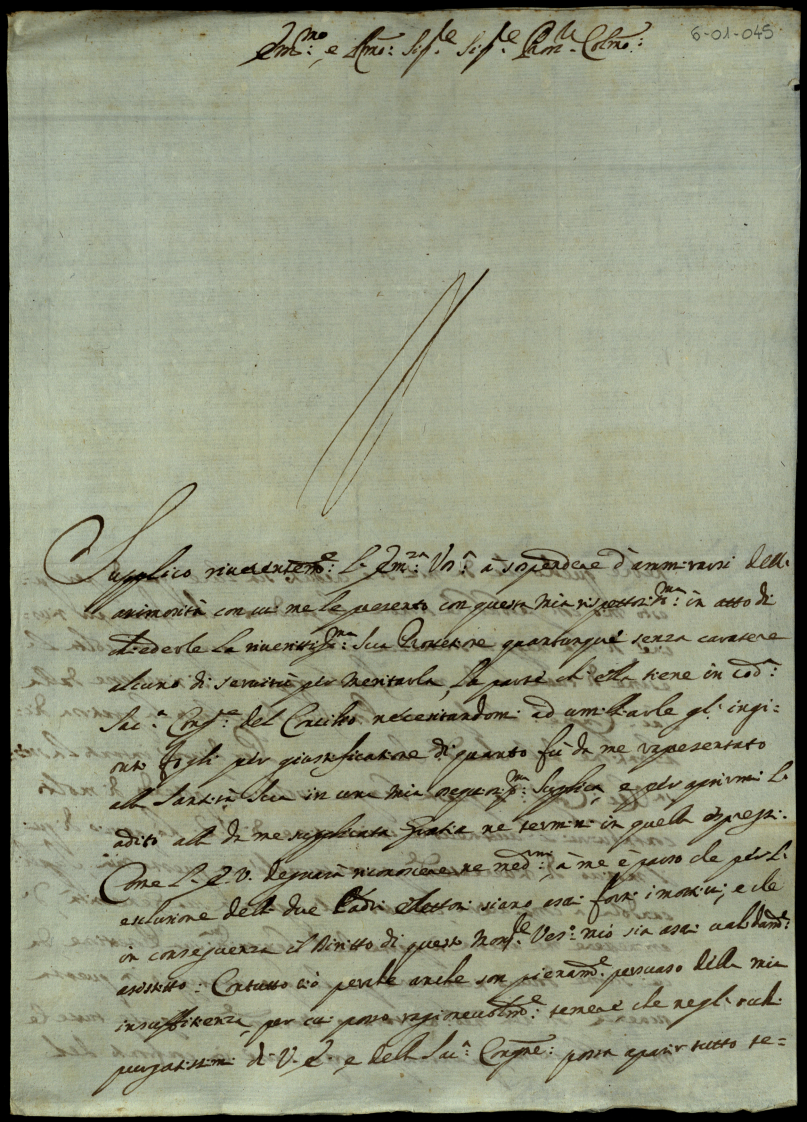 6-01-045
Em.mo: e Rmo: Sig.re Sig.re Pron. Colmo:
Supplico riverentem.e: L'Em.za Vos.a à sospendere d'ammirarsi dell'
animosità con cui me le presento con questa mia rispettosis.ma: in atto di
chiederle la riveritis.ma: Sua Protetione quantunque senza carattere
alcuno di servitù per meritarla, La parte ch'ella tiene in cod.a:
Sac.a Cong.e del Concilio necessitandomi ad umiliarle gl'ingi=
onti fogli per giustificatione di quanto fù da me rapresentato
alla Santità Sua in una mia ossequiosis.ma: Supplica, e per aprirmi L'
adito alla da me supplicata gratia ne termini in quella espressi.
Come L'E.V. degnarà riconoscere ne med.mi: à me è parso che per L'
esclusione delli due Padri Elettori siano assai forti i motivi, e che
in conseguenza il Diritto di questo Mons.re Ves.o mio sia assai validam.e:
assistito: Contutto ciò perche anche son pienam.e persuaso della mia
insufficienza, per cui posso ragionevolm.e: temere che negl'occhi
purgatissimi di V.E. e della Sac.a Congne: possa aparir tutto te=